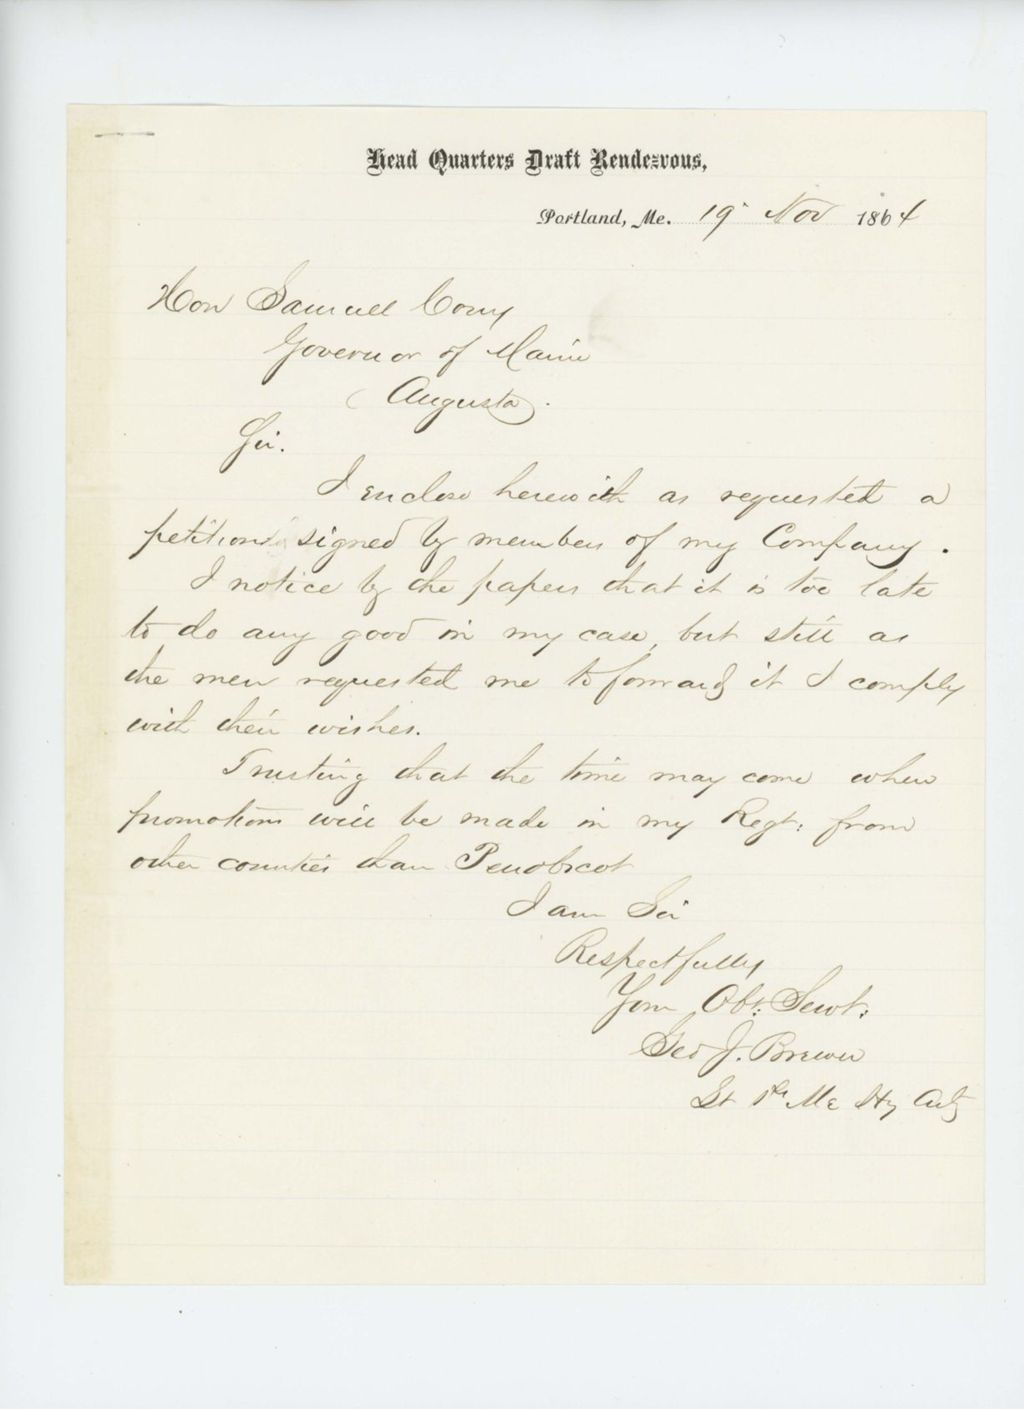 Head Quarters Draft Rendezvous,
Portland, Me. 19" Nov 1864
Hon Samuel Cony
Governor of Maine
(Augusta).
Sir.
I enclose herewith as requested a
petition signed by members of my Company.
I notice by the papers that it is too late
to do any good in my case, but still as
the men requested me to forward it I comply
with their wishes.
Trusting that the time may come when
promotions will be made in my Regt: from
other counties than Penobscot
I am Sir
Respectfully
Your Obt: Servt:
Geo J. Brewer
Lt 1st Me Hy Arty